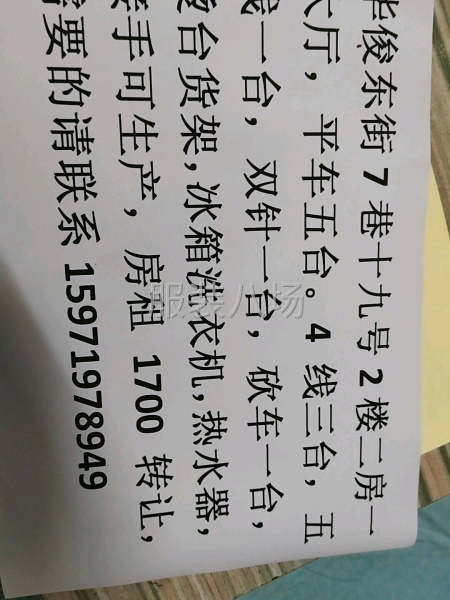 华俊东街7巷十九号2楼二房一
大厅，平车五台。4线三台，五
线一台，双针一台，砍车一台，
台货架，冰箱洗衣机，热水器，
手可生产，房租1700转让，
需要的请联系15971978949
服装八场